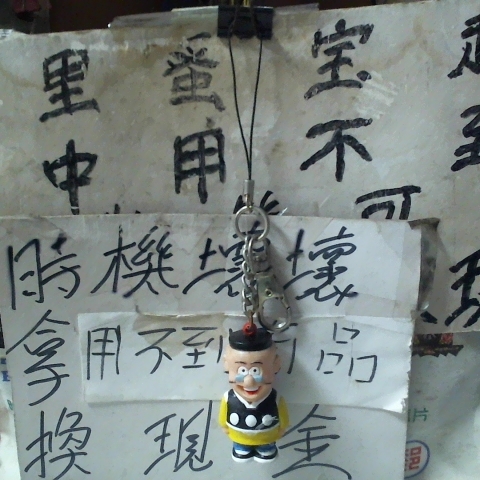 里 蛋 宝
中 用 不 到
可 現
時 機 壞 壞
拿 用 不 到 品
換 現 金